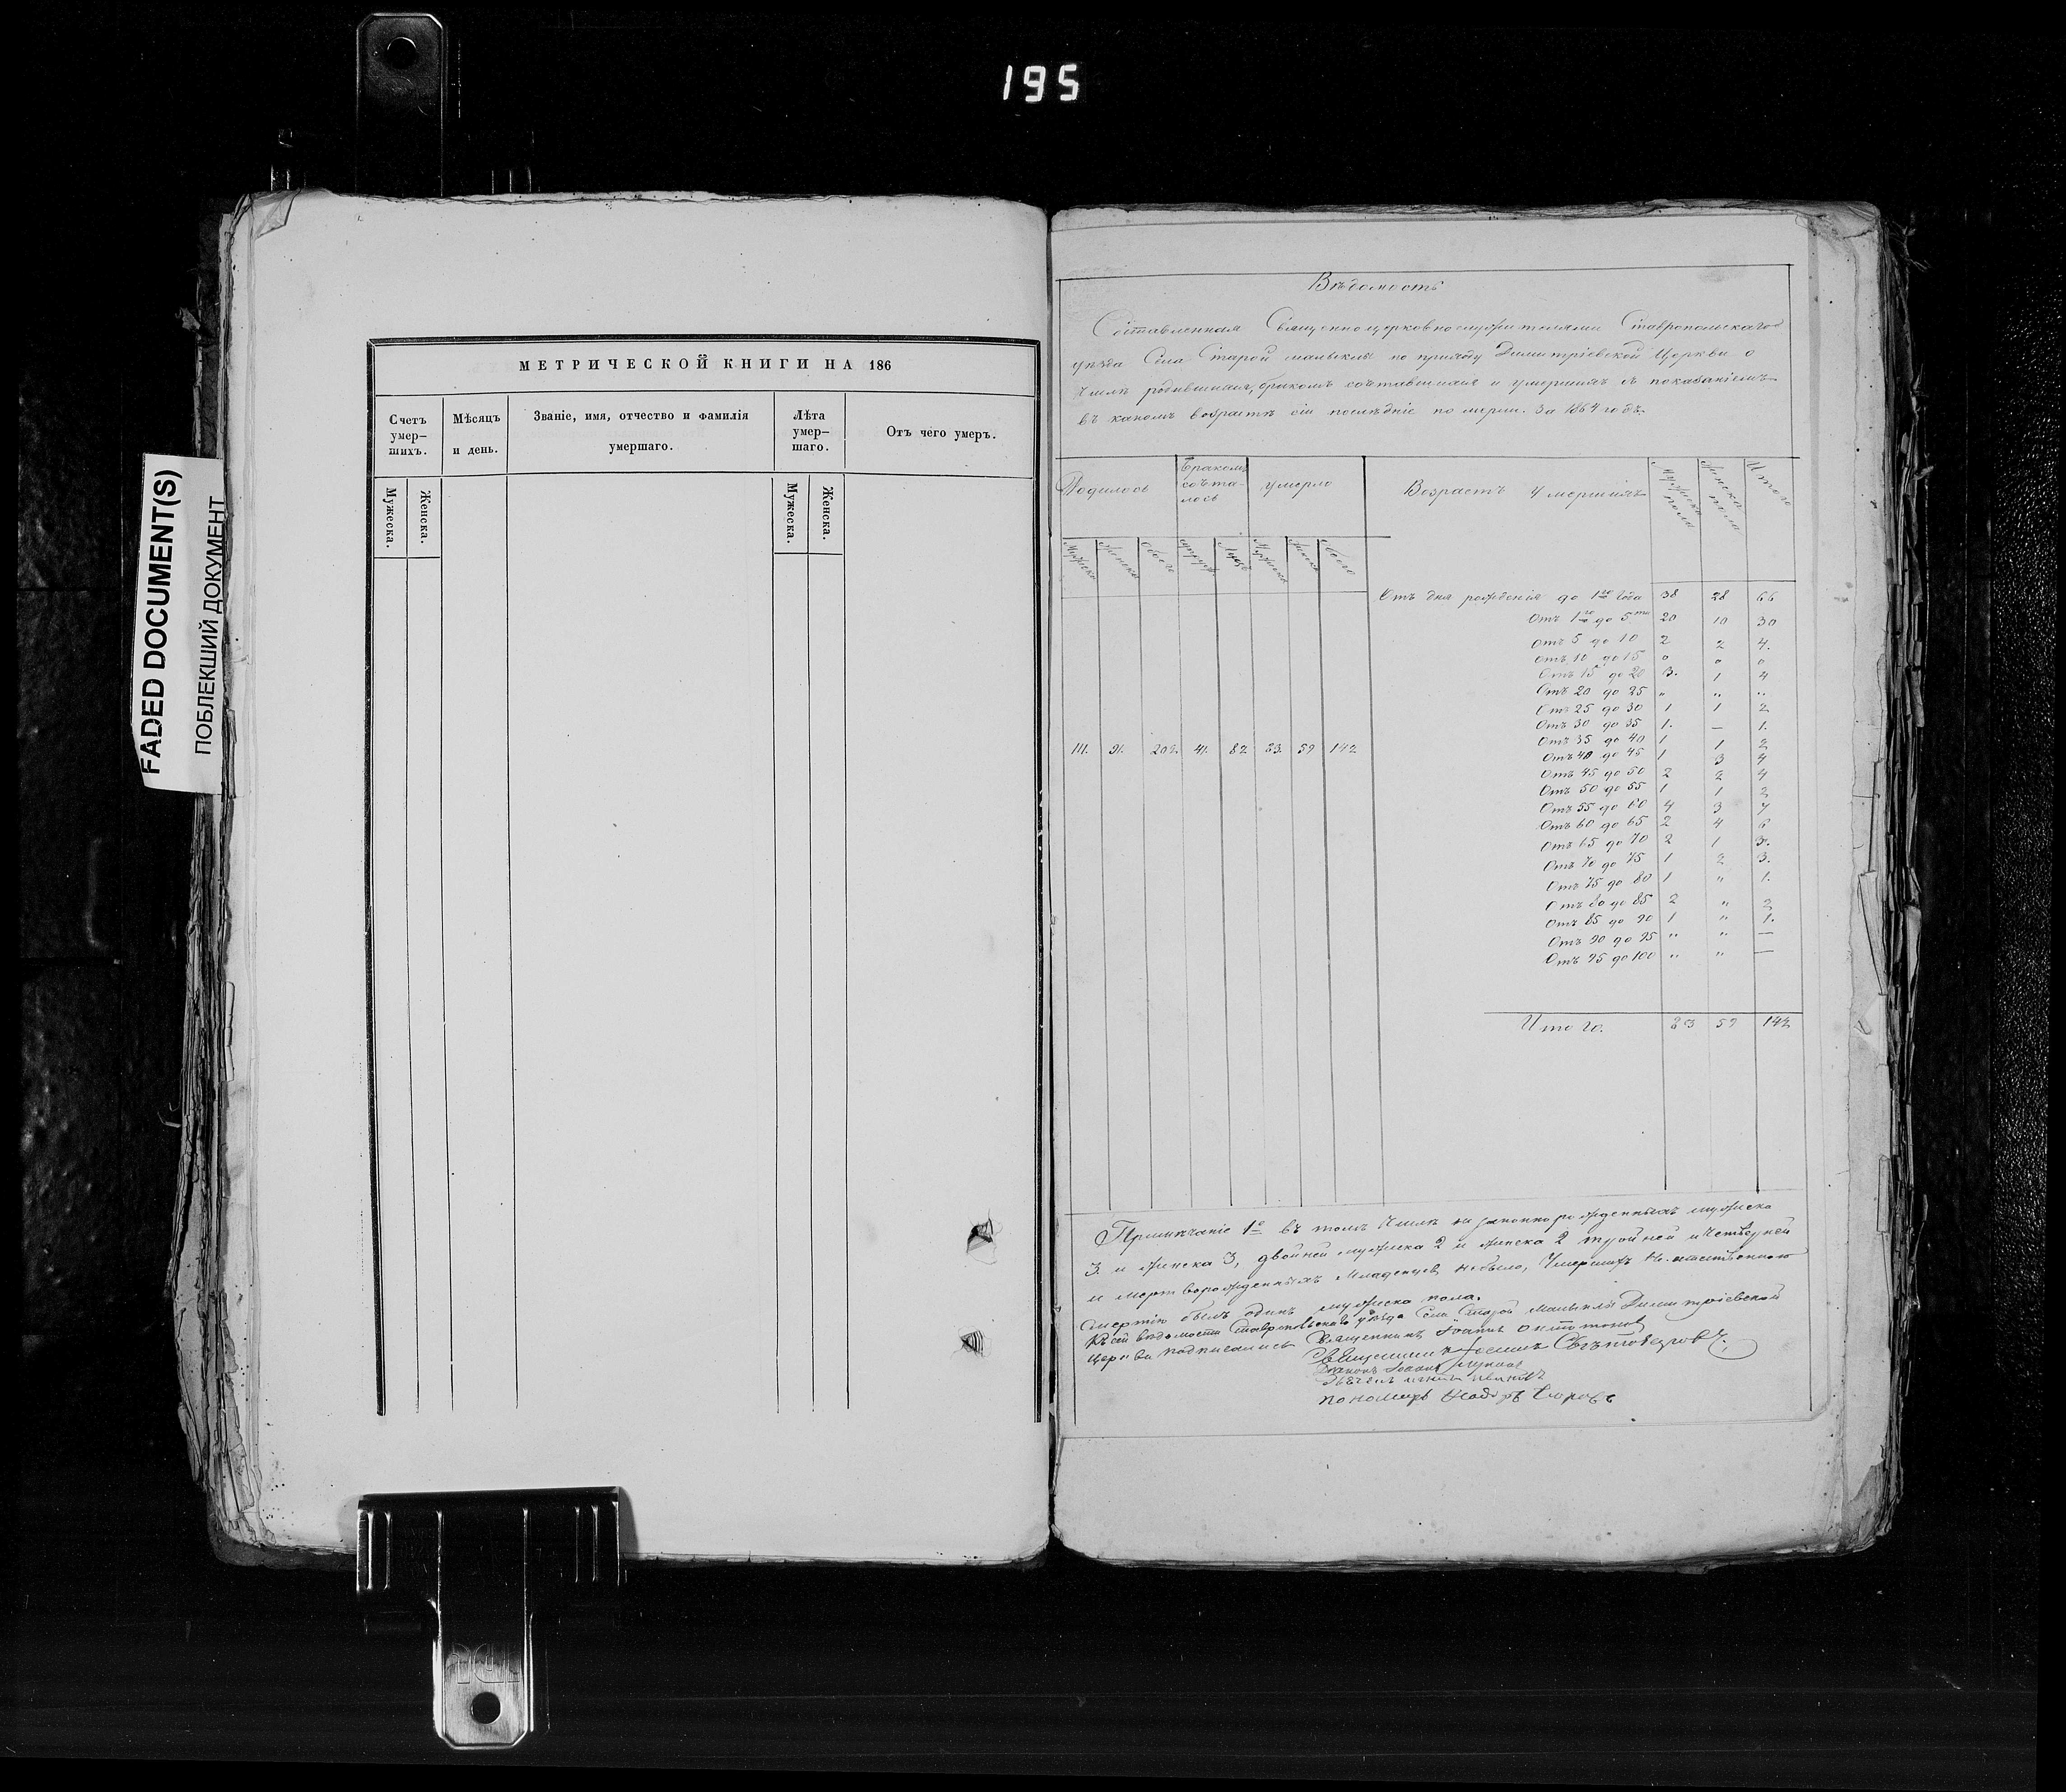 195
FADED DOCUMENT(S)
ПОБЛЕКШИЙ ДОКУМЕНТ
МЕТРИЧЕСКОЙ КНИГИ НА 186
Счетъ умер-шихъ. Мѣсяцъ и день. Званіе, имя, отчество и фамилія умершаго. Лѣта умер-шаго. Отъ чего умеръ.
Мужеска. Женска. Мужеска. Женска.
Вѣдомость
Составленная Священноцерковнослужителями Ставропольскаго
уѣзда Села Старой по приходу Димитріевской Церкви о
числѣ родившихся, бракомъ и умершихъ съ показаніемъ
въ какомъ возрастѣ сіи послѣдніе за 1864 годъ.
Родилось Бракомъ умерло Возрастъ Умершихъ Мужеска пола Женска пола Итого
Мужеска Женска Обоего Мужеска Женска Обоего
Отъ дня рожденія до 1го года 38 28 66
Отъ 1го до 5ти 20 10 30
Отъ 5 до 10 2 2 4.
Отъ 10 до 15 0 0 0
Отъ 15 до 20 3. 1 4
Отъ 20 до 25 " " "
Отъ 25 до 30 1 1 2
Отъ 30 до 35 1. — 1.
Отъ 35 до 40 1 1 2
111. 91. 202. 41. 82 83. 59 142
Отъ 40 до 45 1 3 4
Отъ 45 до 50 2 2 4
Отъ 50 до 55 1 1 2
Отъ 55 до 60 4 3 7
Отъ 60 до 65 2 4 6
Отъ 65 до 70 2 1 3.
Отъ 70 до 75 1 2 3.
Отъ 75 до 80 1 " 1.
Отъ 80 до 85 2 " 2
Отъ 85 до 90 1 " 1.
Отъ 90 до 95 " " —
Отъ 95 до 100 " " —
Итого. 83 59 142
Примѣчаніе 1е въ томъ числѣ незаконнорожденныхъ мужеска
3 и женска 3, двойней мужеска 2 и женска 2 тройней и четверней
и мертворожденныхъ младенцевъ небыло, Умершихъ
смертію былъ одинъ мужеска пола.
Къ сей вѣдомости Ставропольскаго уѣзда Села Старой Димитріевской
Церкви подписались Священникъ Іоаннъ
Священникъ
Діаконъ Іоаннъ
Пономарь